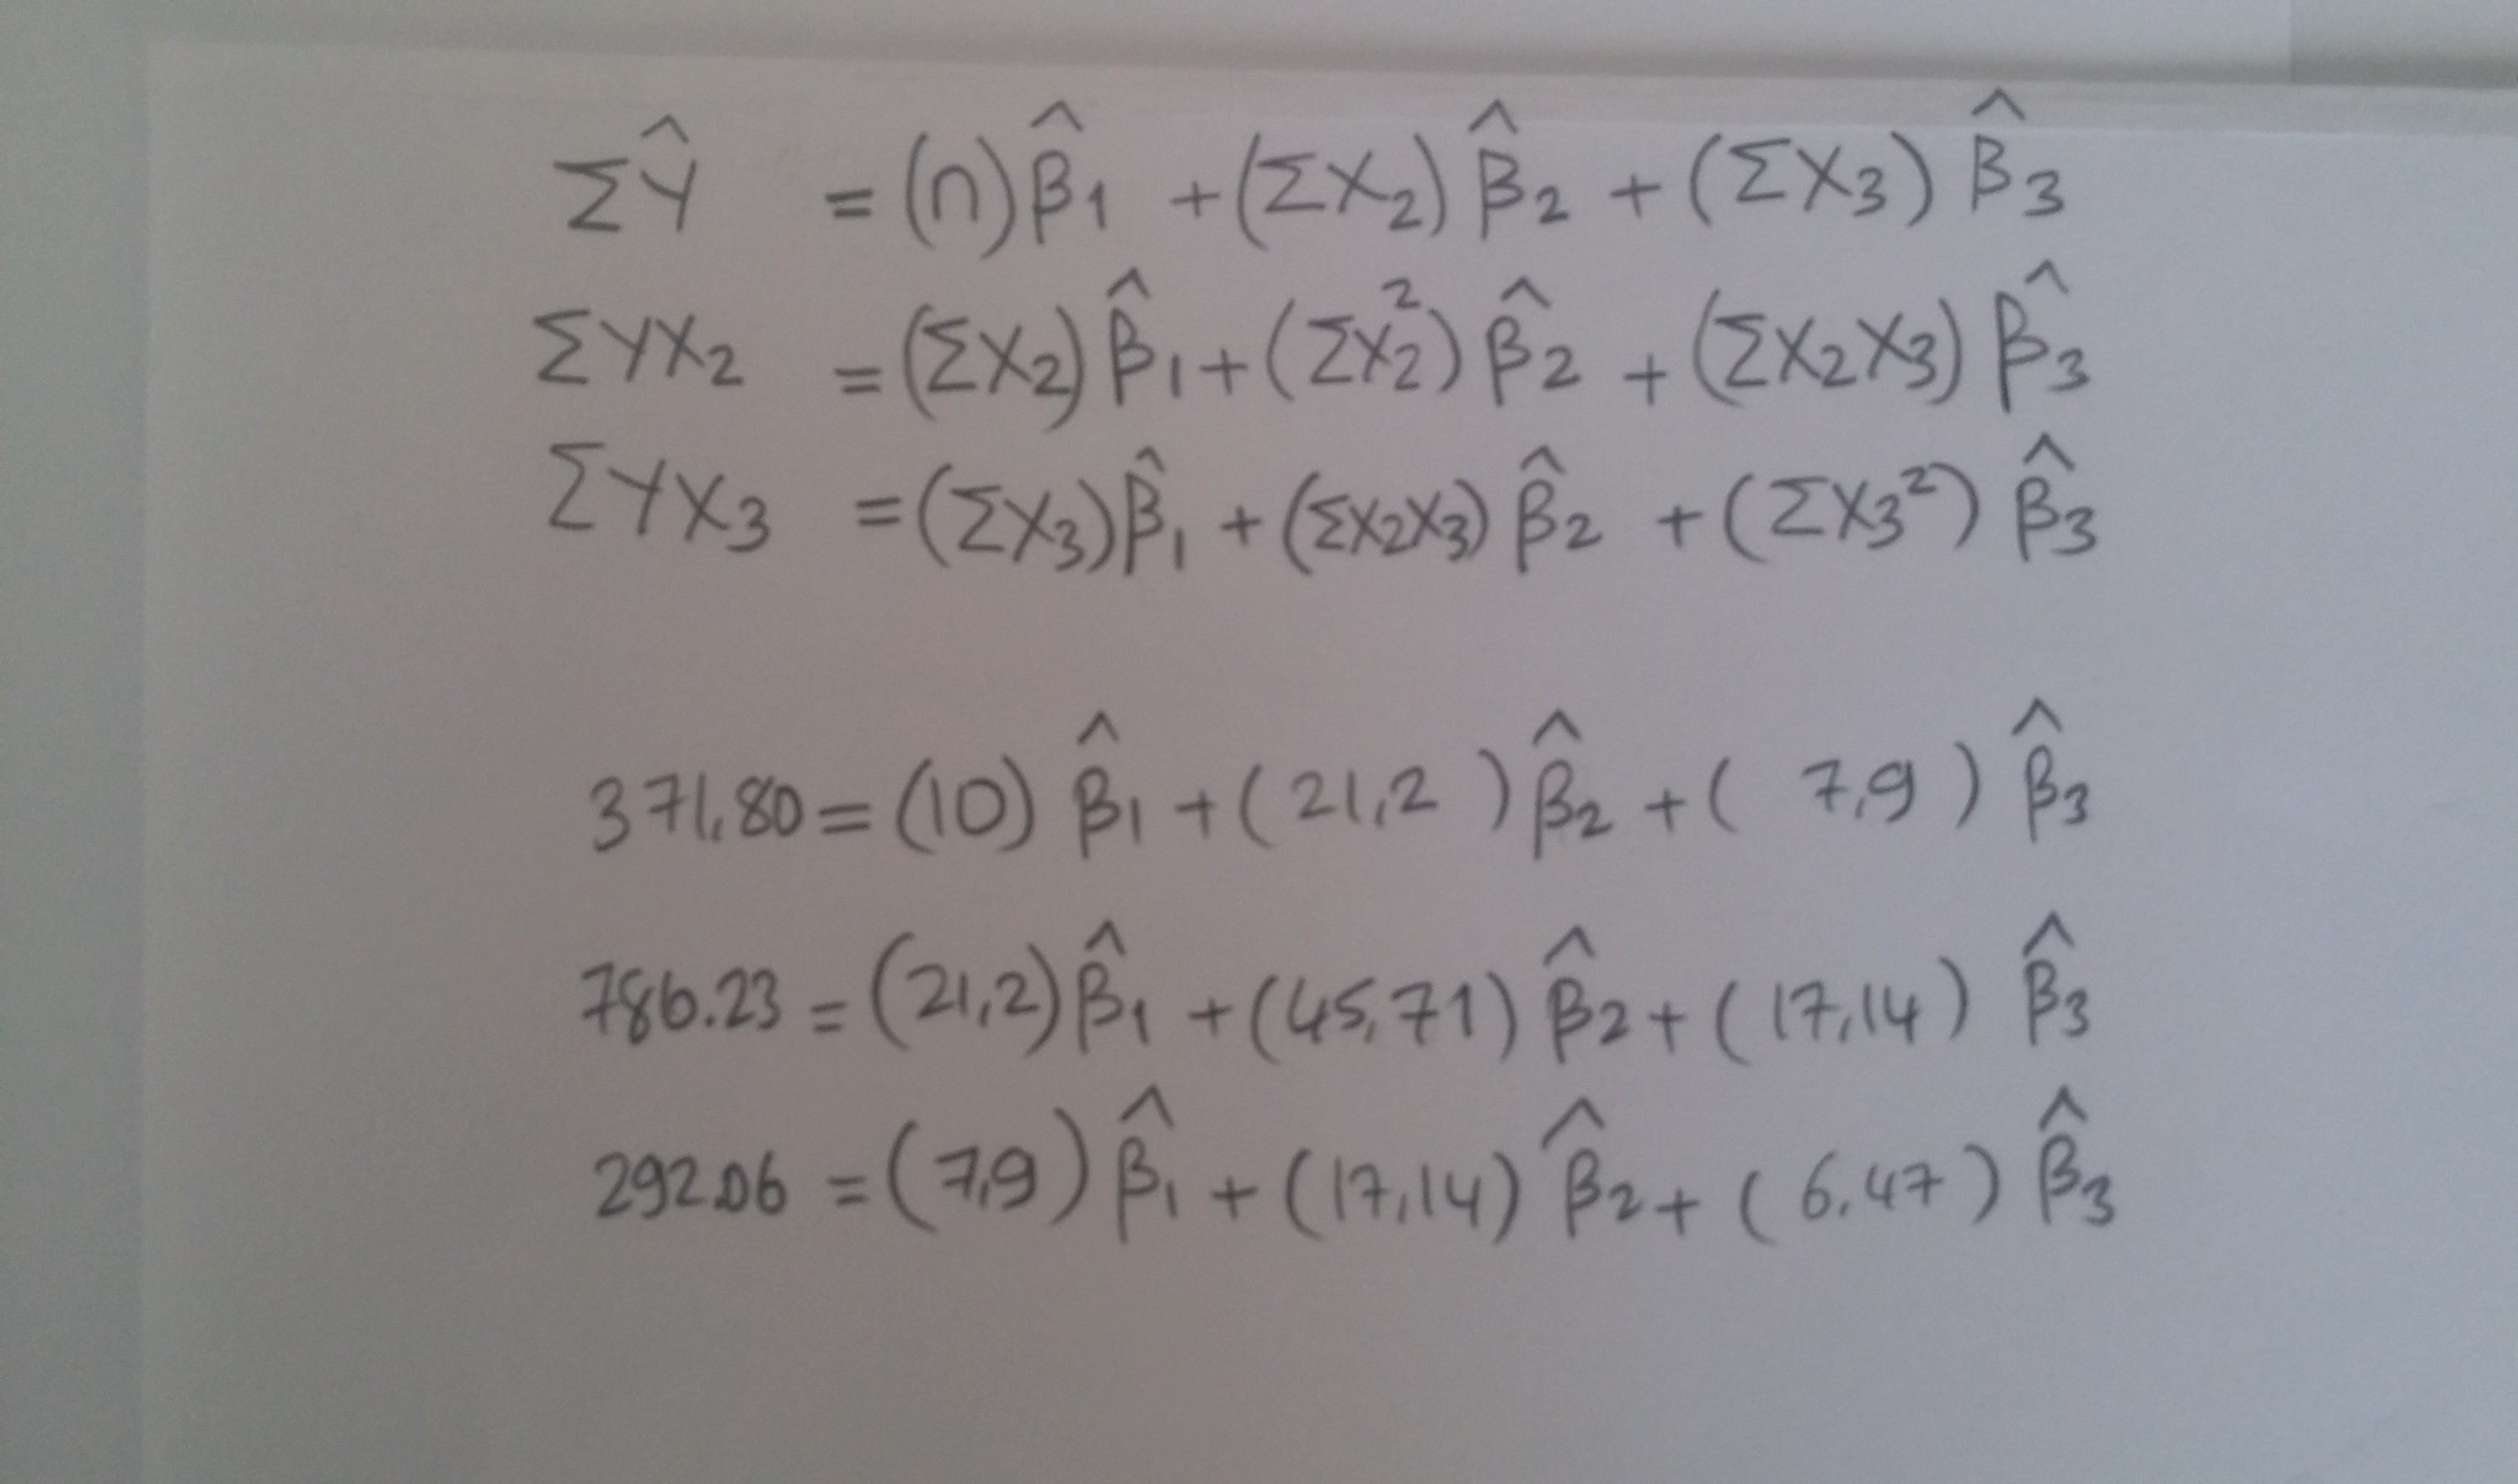 ΣŶ = (n)β̂1 + (ΣX2)β̂2 + (ΣX3)β̂3
ΣYX2 = (ΣX2)β̂1 + (ΣX2²)β̂2 + (ΣX2X3)β̂3
ΣYX3 = (ΣX3)β̂1 + (ΣX2X3)β̂2 + (ΣX3²)β̂3
371,80 = (10)β̂1 + (21,2)β̂2 + (7,9)β̂3
786.23 = (21,2)β̂1 + (45,71)β̂2 + (17,14)β̂3
292.06 = (7,9)β̂1 + (17,14)β̂2 + (6,47)β̂3